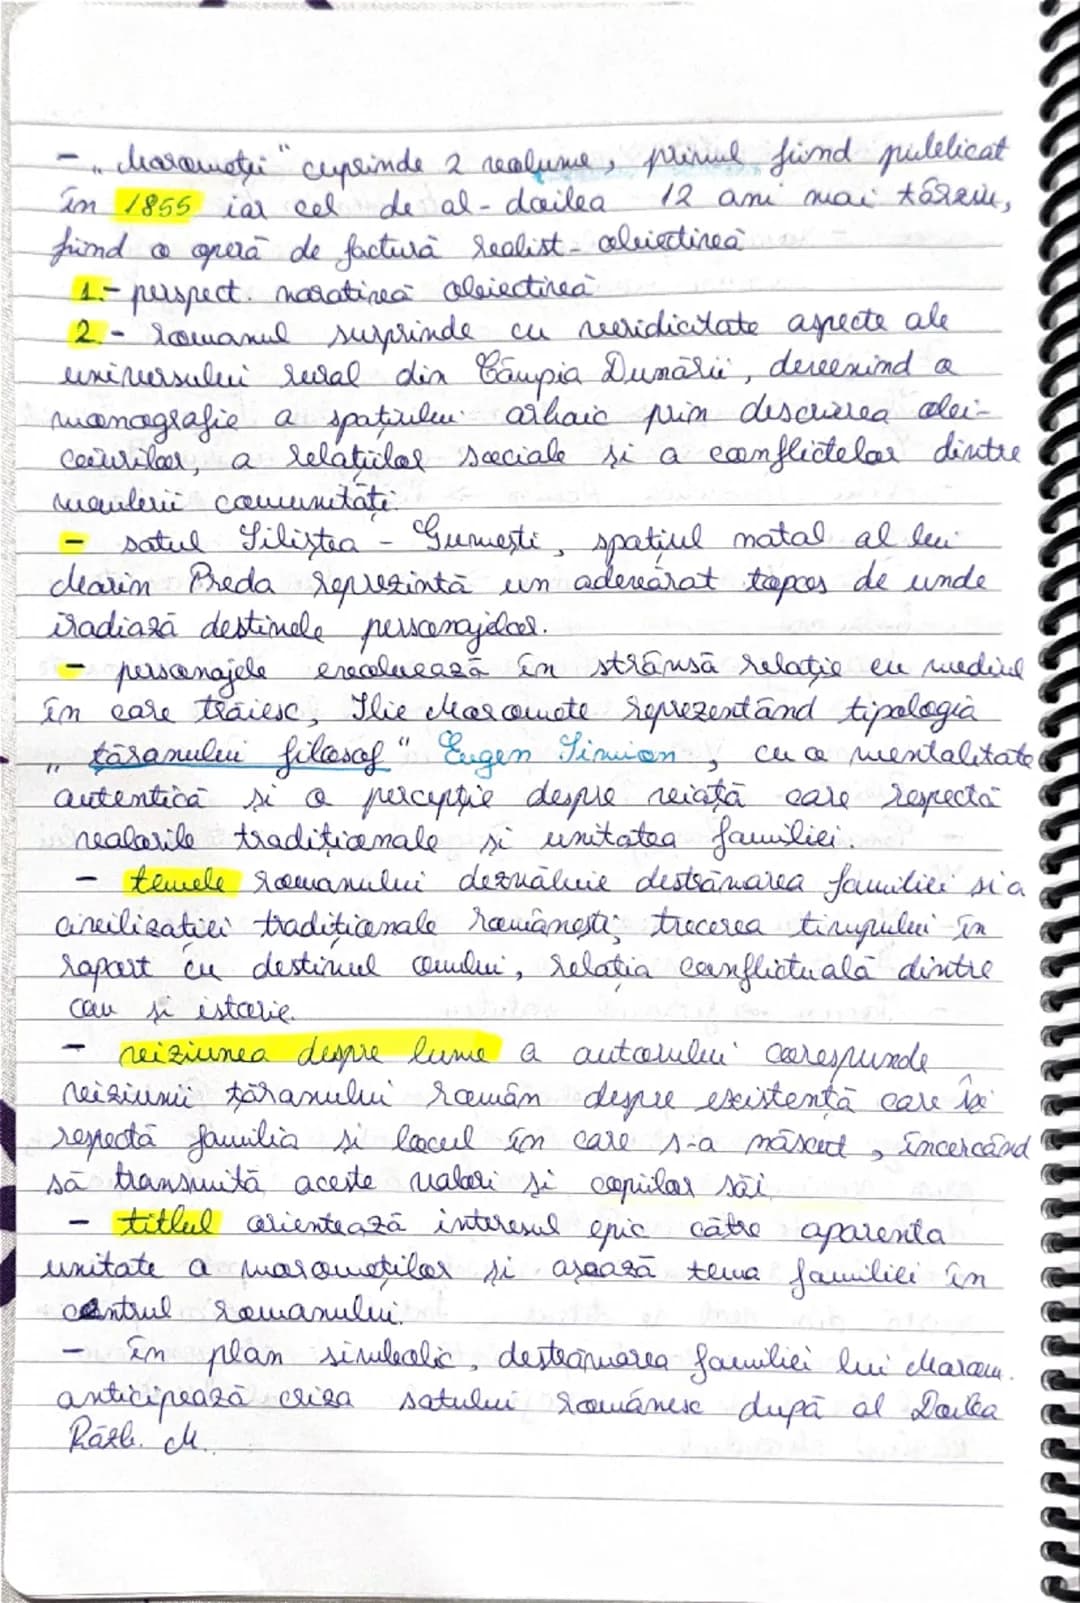 - „Moromeții" cuprinde 2 volume, primul fiind publicat
în 1855 iar cel de al-doilea 12 ani mai târziu,
fiind o operă de factură realist-obiectivă
1.- perspect. narativă obiectivă
2.- romanul surprinde cu veridicitate aspecte ale
universului rural din Câmpia Dunării, devenind o
monografie a spațiului arhaic prin descrierea obi-
ceiurilor, a relațiilor sociale și a conflictelor dintre
membrii comunități.
- satul Siliștea - Gumești, spațiul natal al lui
Marin Preda reprezintă un adevărat topos de unde
iradiază destinele personajelor.
- personajele evoluează în strânsă relație cu mediul
în care trăiesc, Ilie Moromete reprezentând tipologia
„țăranului filosof" Eugen Simion, cu o mentalitate
autentică și o percepție despre viață care respectă
valorile tradiționale și unitatea familiei.
- temele romanului dezvăluie destrămarea familiei și a
civilizației tradiționale românești, trecerea timpului în
raport cu destinul omului, relația conflictuală dintre
om și istorie.
- viziunea despre lume a autorului corespunde
viziunii țăranului român despre existență care își
respectă familia și locul în care s-a născut, încercând
să transmită aceste valori și copiilor săi.
- titlul orientează interesul epic către aparenta
unitate a moromeților și așază tema familiei în
centrul romanului.
- în plan simbolic, destrămarea familiei lui Morom.
anticipează criza satului românesc după al Doilea
Răzb. M.